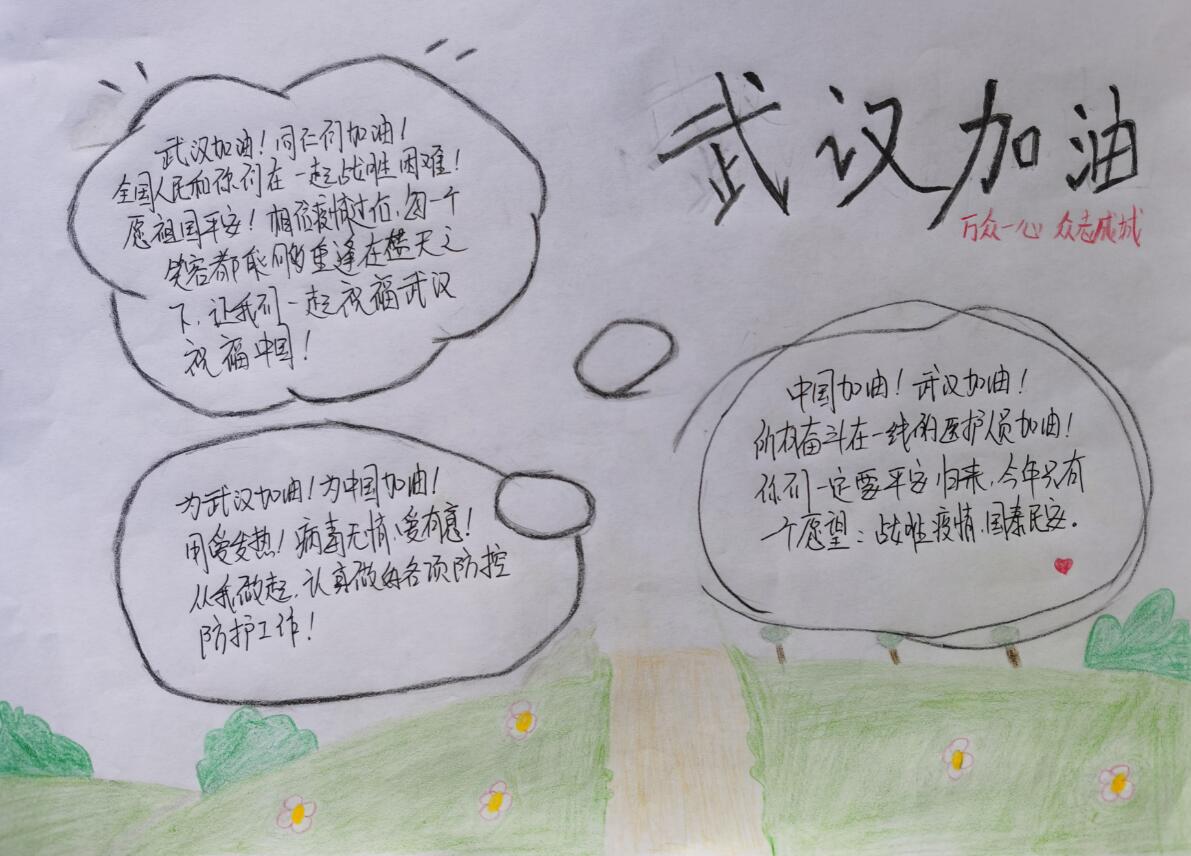 武汉加油
万众一心 众志成城
武汉加油！同仁们加油！
全国人民和你们在一起战胜困难！
愿祖国平安！相信疫情过后，每一个
笑容都能够重逢在楚天之
下，让我们一起祝福武汉
祝福中国！
中国加油！武汉加油！
所有奋斗在一线的医护人员加油！
你们一定要平安归来，今年只有
一个愿望：战胜疫情，国泰民安。
为武汉加油！为中国加油！
用爱发热！病毒无情，爱有意！
从我做起，认真做好各项防控
防护工作！